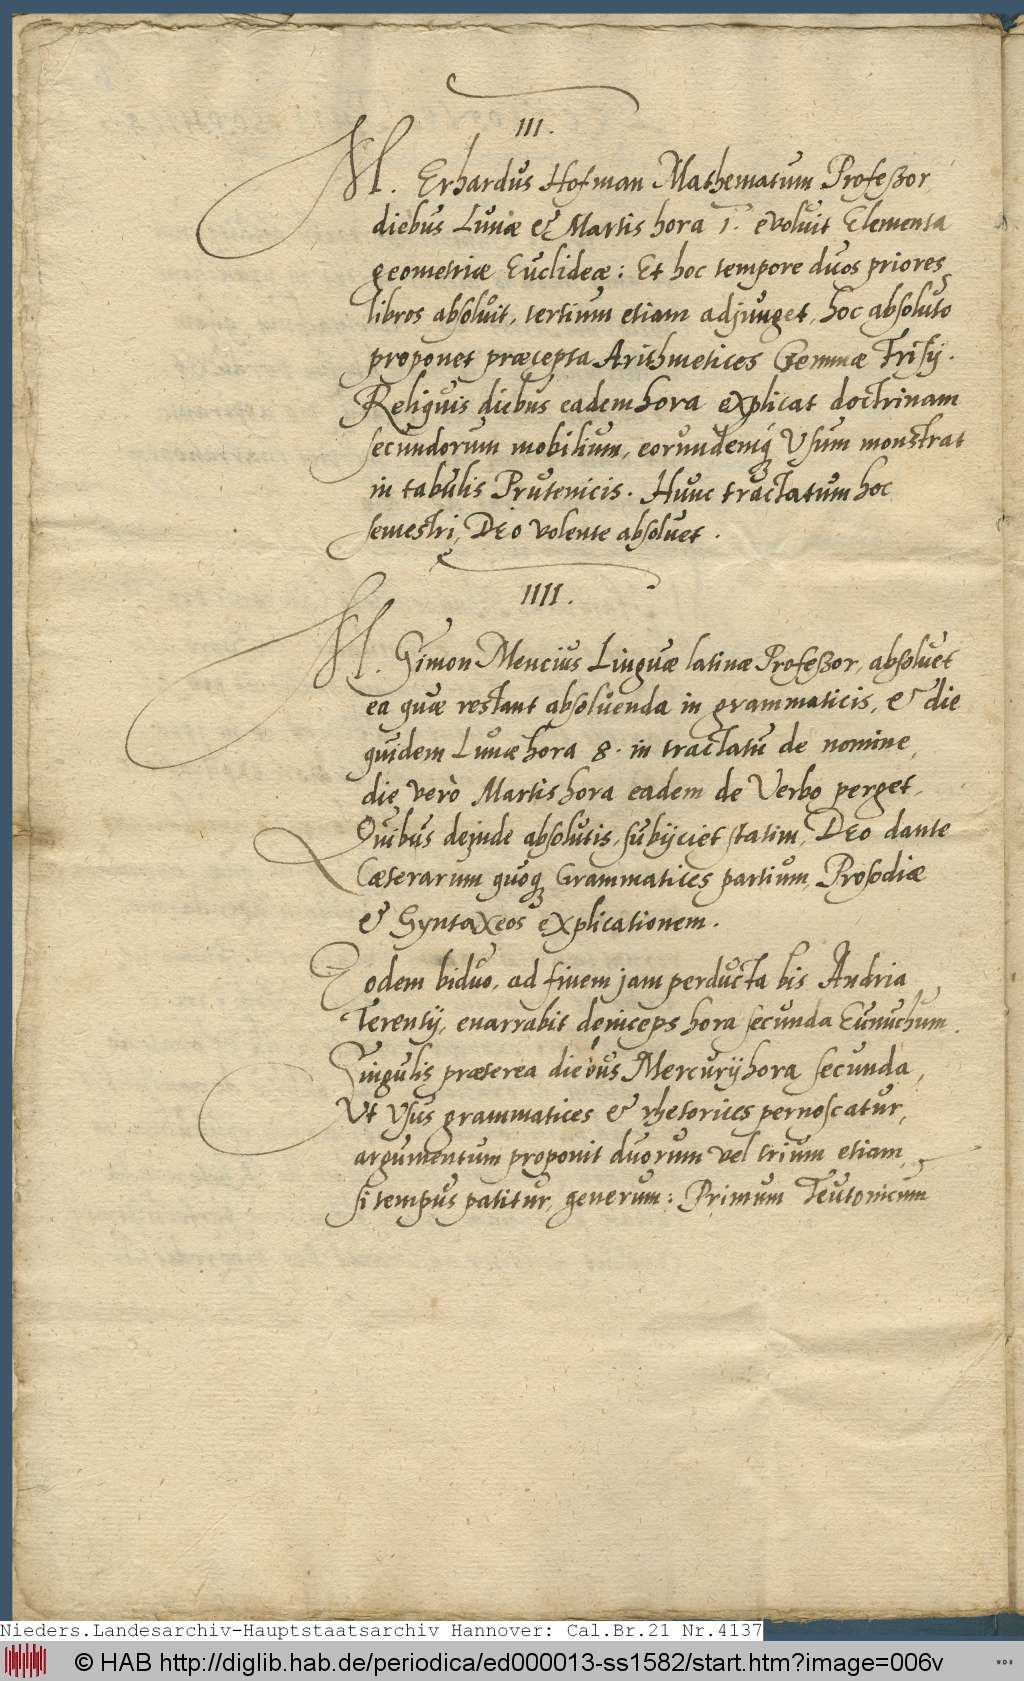 III.
M. Erhardus Hofman Mathematum Profeßor
diebus Lunæ & Martis hora 1. evoluit Elementa
geometriæ Euclideæ: Et hoc tempore duos priores
libros absoluit, tertium etiam adjunget, hoc absoluto
proponet præcepta Arithmetices Gemmæ Frisij.
Reliquis diebus eadem hora explicat doctrinam
secundorum mobilium, eorundemq́ Vsum monstrat
in tabulis Prutenicis. Hunc tractatum hoc
semestri, Deo volente absoluet.
IIII.
M. Simon Mencius Linguæ latinæ Profeßor, absoluet
ea quæ restant absoluenda in grammaticis, & die
quidem Lunæ hora 8. in tractatu de nomine,
die verò Martis hora eadem de Verbo perget.
Quibus deinde absolutis, subijciet statim, Deo dante
Cæterarum quoq Grammatices partium, Prosodiæ
& Syntaxeos explicationem.
Eodem biduo, ad finem jam perducta bis Andria
Terentij, enarrabit deinceps hora secunda Eunuchum.
Singulis præterea diebus Mercurij hora secunda,
Vt vsus grammatices & rhetorices pernoscatur,
argumentum proponit duorum vel trium etiam,
si tempus patitur, generum: Primum Teutonicum
Nieders.Landesarchiv-Hauptstaatsarchiv Hannover: Cal.Br.21 Nr.4137
© HAB http://diglib.hab.de/periodica/ed000013-ss1582/start.htm?image=006v